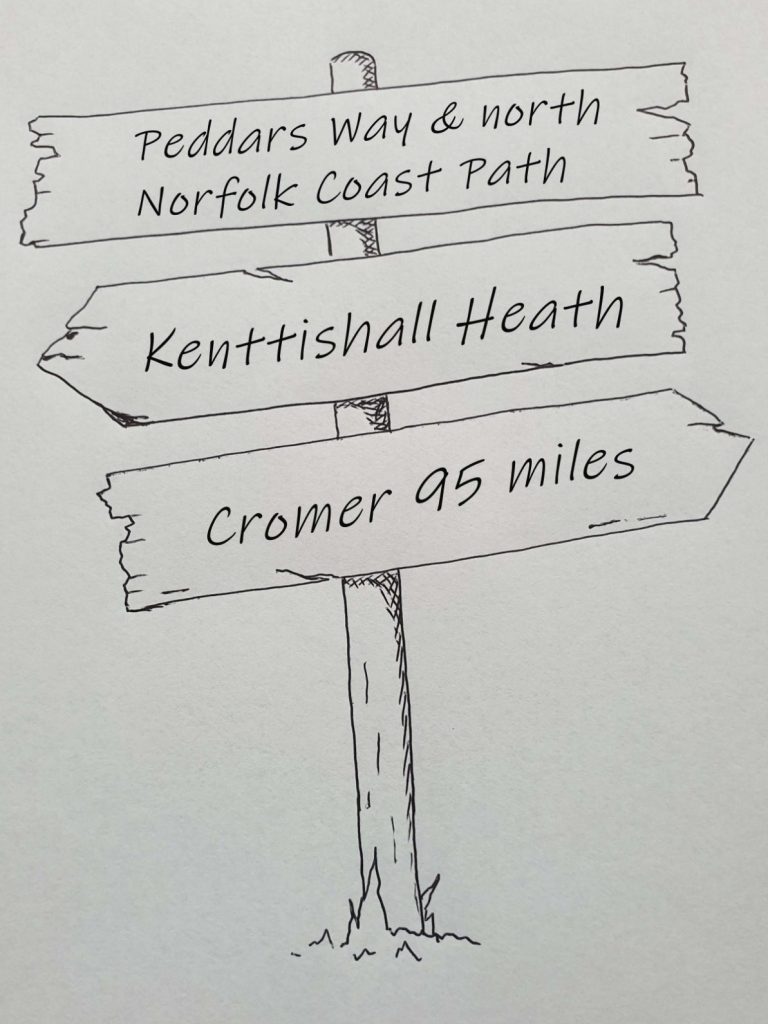 Peddars Way & north
Norfolk Coast Path
Kenttishall Heath
Cromer 95 miles